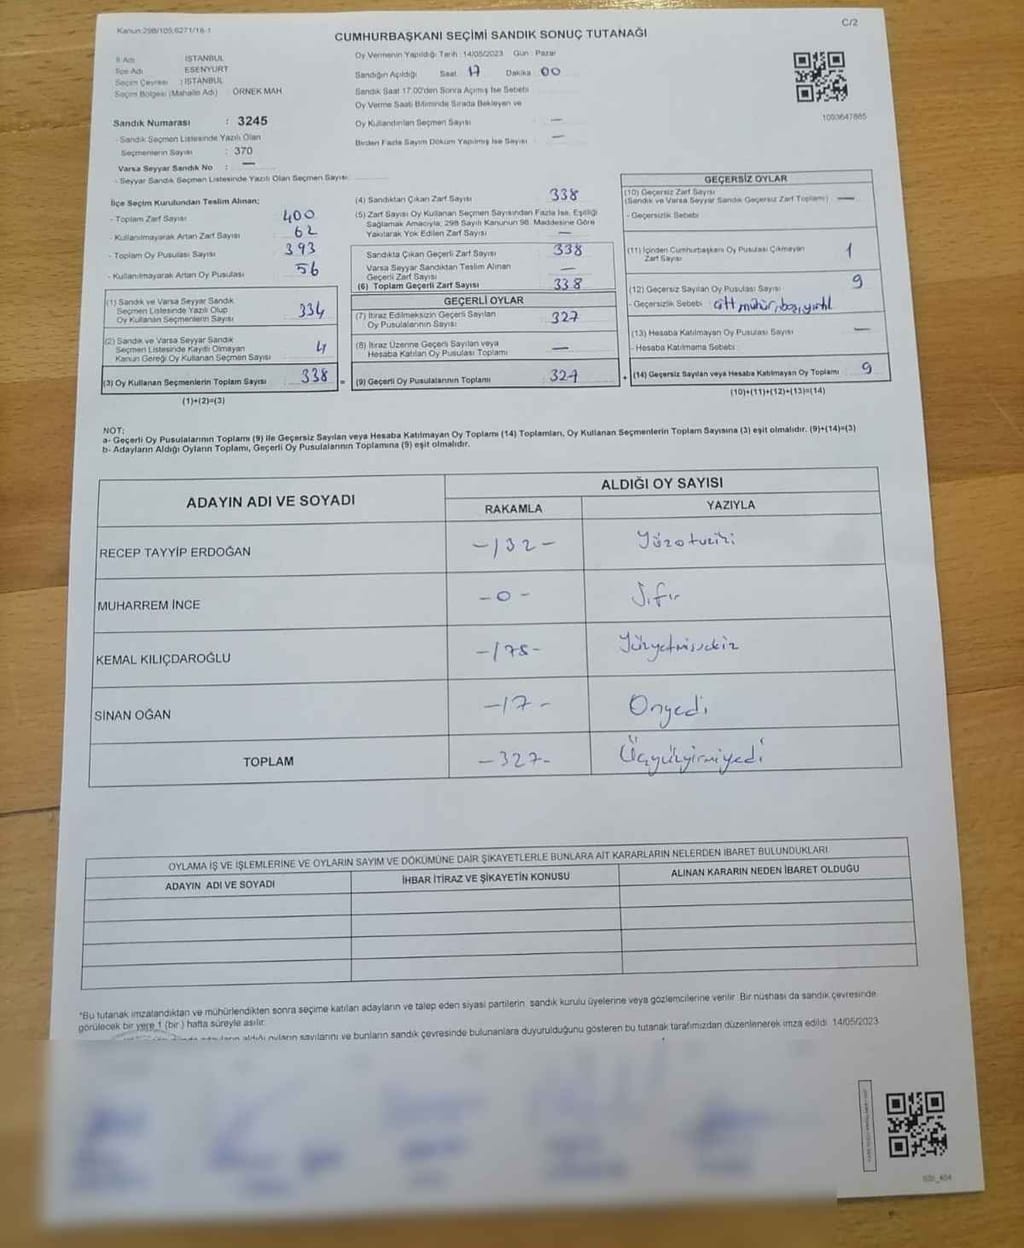 Kanun:298/105,6271/18-1
C/2
CUMHURBAŞKANI SEÇİMİ SANDIK SONUÇ TUTANAĞI
İl Adı : İSTANBUL
İlçe Adı : ESENYURT
Seçim Çevresi : İSTANBUL
Seçim Bölgesi (Mahalle Adı) : ÖRNEK MAH
Sandık Numarası : 3245
- Sandık Seçmen Listesinde Yazılı Olan
Seçmenlerin Sayısı : 370
Varsa Seyyar Sandık No : —
- Seyyar Sandık Seçmen Listesinde Yazılı Olan Seçmen Sayısı:
Oy Vermenin Yapıldığı Tarih :14/05/2023 Gün : Pazar
Sandığın Açıldığı Saat 17 Dakika 00
Sandık Saat 17.00'den Sonra Açılmış İse Sebebi
Oy Verme Saati Bitiminde Sırada Bekleyen ve
Oy Kullandırılan Seçmen Sayısı : —
Birden Fazla Sayım Döküm Yapılmış İse Sayısı : —
1093647865
İlçe Seçim Kurulundan Teslim Alınan;
- Toplam Zarf Sayısı : 400
- Kullanılmayarak Artan Zarf Sayısı : 62
- Toplam Oy Pusulası Sayısı : 393
- Kullanılmayarak Artan Oy Pusulası : 56
(1) Sandık ve Varsa Seyyar Sandık
Seçmen Listesinde Yazılı Olup
Oy Kullanan Seçmenlerin Sayısı 334
(2) Sandık ve Varsa Seyyar Sandık
Seçmen Listesinde Kayıtlı Olmayan
Kanun Gereği Oy Kullanan Seçmen Sayısı 4
(3) Oy Kullanan Seçmenlerin Toplam Sayısı 338 =
(1)+(2)=(3)
(4) Sandıktan Çıkan Zarf Sayısı 338
(5) Zarf Sayısı Oy Kullanan Seçmen Sayısından Fazla İse, Eşitliği
Sağlamak Amacıyla; 298 Sayılı Kanunun 98. Maddesine Göre
Yakılarak Yok Edilen Zarf Sayısı : —
Sandıkta Çıkan Geçerli Zarf Sayısı 338
Varsa Seyyar Sandıktan Teslim Alınan
Geçerli Zarf Sayısı —
(6) Toplam Geçerli Zarf Sayısı 338
GEÇERLİ OYLAR
(7) İtiraz Edilmeksizin Geçerli Sayılan
Oy Pusulalarının Sayısı 327
(8) İtiraz Üzerine Geçerli Sayılan veya
Hesaba Katılan Oy Pusulası Toplamı —
(9) Geçerli Oy Pusulalarının Toplamı 327 +
GEÇERSİZ OYLAR
(10) Geçersiz Zarf Sayısı
(Sandık ve Varsa Seyyar Sandık Geçersiz Zarf Toplamı) —
- Geçersizlik Sebebi
(11) İçinden Cumhurbaşkanı Oy Pusulası Çıkmayan
Zarf Sayısı 1
(12) Geçersiz Sayılan Oy Pusulası Sayısı 9
- Geçersizlik Sebebi : çift mühür, boş, yırtık
(13) Hesaba Katılmayan Oy Pusulası Sayısı —
- Hesaba Katılmama Sebebi
(14) Geçersiz Sayılan veya Hesaba Katılmayan Oy Toplamı 9
(10)+(11)+(12)+(13)=(14)
NOT:
a- Geçerli Oy Pusulalarının Toplamı (9) ile Geçersiz Sayılan veya Hesaba Katılmayan Oy Toplamı (14) Toplamları, Oy Kullanan Seçmenlerin Toplam Sayısına (3) eşit olmalıdır. (9)+(14)=(3)
b- Adayların Aldığı Oyların Toplamı, Geçerli Oy Pusulalarının Toplamına (9) eşit olmalıdır.
ADAYIN ADI VE SOYADI
ALDIĞI OY SAYISI
RAKAMLA YAZIYLA
RECEP TAYYİP ERDOĞAN -132- Yüzotuziki
MUHARREM İNCE -0- Sıfır
KEMAL KILIÇDAROĞLU -178- Yüzyetmişsekiz
SİNAN OĞAN -17- Onyedi
TOPLAM -327- Üçyüzyirmiyedi
OYLAMA İŞ VE İŞLEMLERİNE VE OYLARIN SAYIM VE DÖKÜMÜNE DAİR ŞİKAYETLERLE BUNLARA AİT KARARLARIN NELERDEN İBARET BULUNDUKLARI
ADAYIN ADI VE SOYADI İHBAR İTİRAZ VE ŞİKAYETİN KONUSU ALINAN KARARIN NEDEN İBARET OLDUĞU
*Bu tutanak imzalandıktan ve mühürlendikten sonra seçime katılan adayların ve talep eden siyasi partilerin, sandık kurulu üyelerine veya gözlemcilerine verilir. Bir nüshası da sandık çevresinde
görülecek bir yere 1 (bir ) hafta süreyle asılır.
adayların aldığı oyların sayılarını ve bunların sandık çevresinde bulunanlara duyurulduğunu gösteren bu tutanak tarafımızdan düzenlenerek imza edildi. 14/05/2023